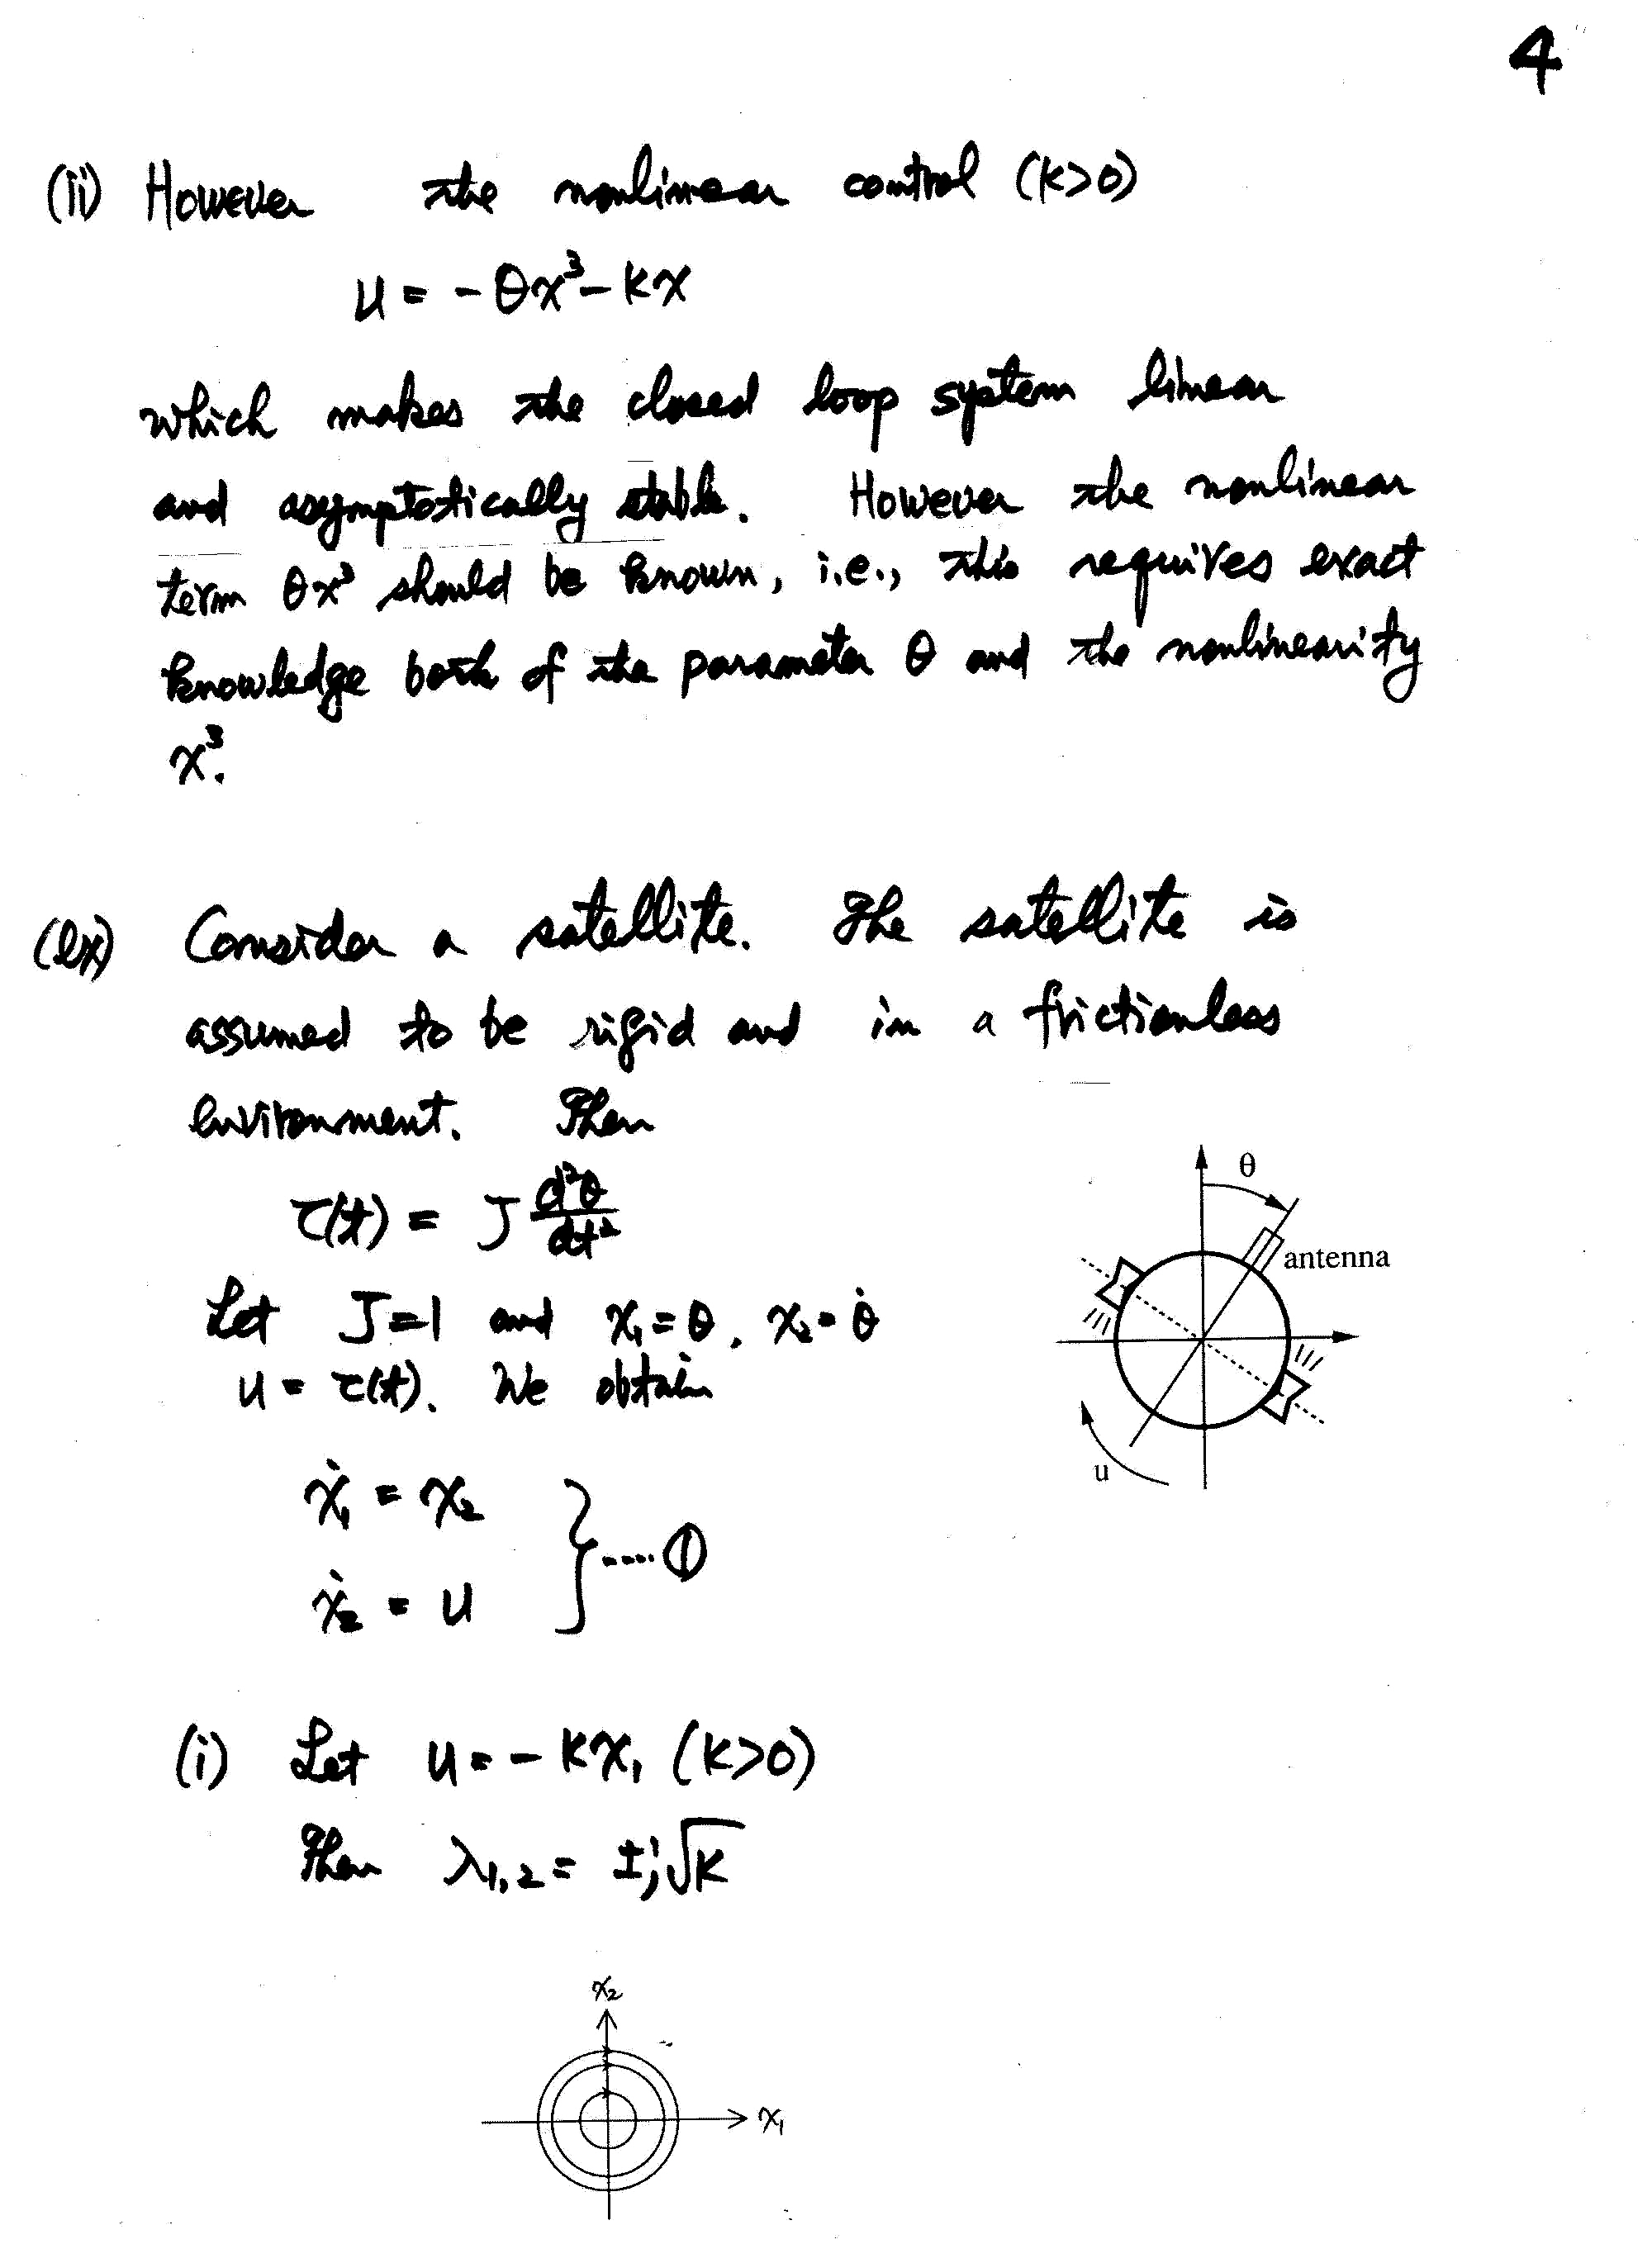 4
(ii) However the nonlinear control (k>0)
u = - θx³ - kx
which makes the closed loop system linear
and asymptotically stable. However the nonlinear
term θx³ should be known, i.e., this requires exact
knowledge both of the parameter θ and the nonlinearity
x³.
(ex) Consider a satellite. The satellite is
assumed to be rigid and in a frictionless
environment. Then
τ(t) = J d²θ/dt²
Let J=1 and x₁ = θ, x₂ = θ̇
u = τ(t). We obtain
ẋ₁ = x₂
ẋ₂ = u
} ..... ①
θ
antenna
u
(i) Let u = - kx₁ (k>0)
Then λ₁,₂ = ±j√k
x₂
x₁